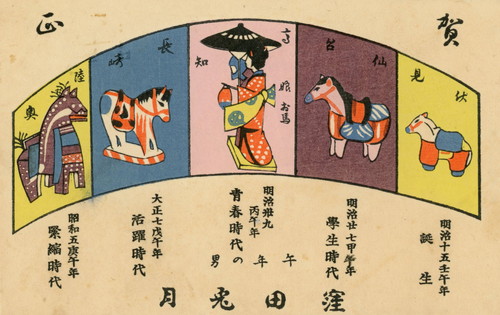 賀正
伏見
仙台
高知
娘お馬
長崎
陸奥
明治十五壬午年
誕生
明治廿七甲午年
學生時代
明治卅九丙午年
青春時代
大正七戊午年
活躍時代
昭和五庚午年
緊縮時代
午年の男
窪田兎月